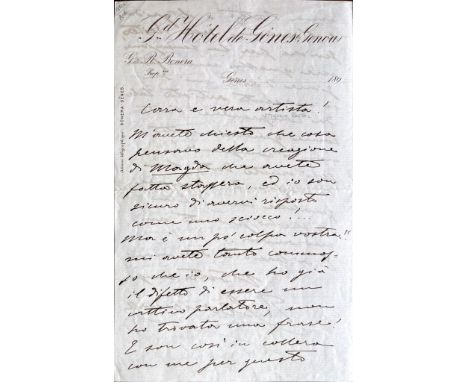 Gd. Hôtel de Gênes Genova
R. Bonera
Gênes 189
Cara e vera artista!
M'avete chiesto che cosa
pensavo della creazione
di Magda che avete
fatta stassera, ed io son
sicuro di avervi risposto
come uno sciocco!...
Ma è un po' colpa vostra!!
mi avete tanto commos-
so che io, che ho già
il difetto di essere un
cattivo parlatore, non
ho trovata una frase!
E son così in collera
con me per questo
BONERA GÊNES